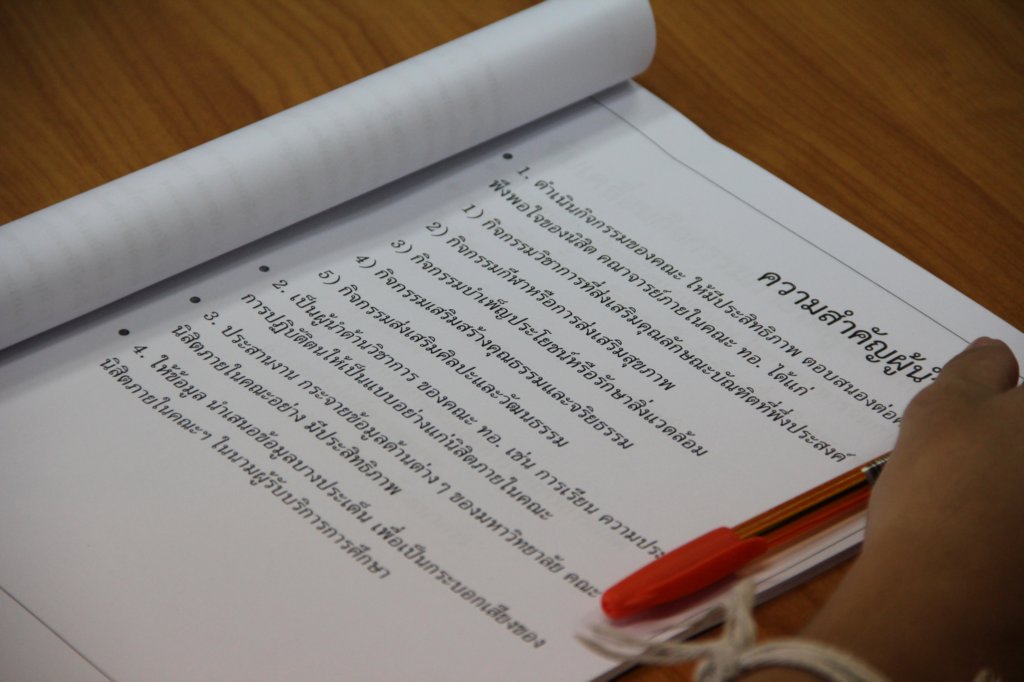 ความสำคัญผู้นำ
1. ดำเนินกิจกรรมของคณะ ให้มีประสิทธิภาพ ตอบสนองต่อค
พึงพอใจของนิสิต คณาจารย์ภายในคณะ ทอ. ได้แก่
1) กิจกรรมวิชาการที่ส่งเสริมคุณลักษณะบัณฑิตที่พึ่งประสงค์
2) กิจกรรมกีฬาหรือการส่งเสริมสุขภาพ
3) กิจกรรมบำเพ็ญประโยชน์หรือรักษาสิ่งแวดล้อม
4) กิจกรรมเสริมสร้างคุณธรรมและจริยธรรม
5) กิจกรรมส่งเสริมศิลปะและวัฒนธรรม
2. เป็นผู้นำด้านวิชาการ ของคณะ ทอ. เช่น การเรียน ความประ
การปฏิบัติตนให้เป็นแบบอย่างแก่นิสิตภายในคณะ
3. ประสานงาน กระจายข้อมูลด้านต่างๆ ของมหาวิทยาลัย คณะ
นิสิตภายในคณะอย่าง มีประสิทธิภาพ
4. ให้ข้อมูล นำเสนอข้อมูลบางประเด็น เพื่อเป็นกระบอกเสียงของ
นิสิตภายในคณะฯ ในนามผู้รับบริการการศึกษา